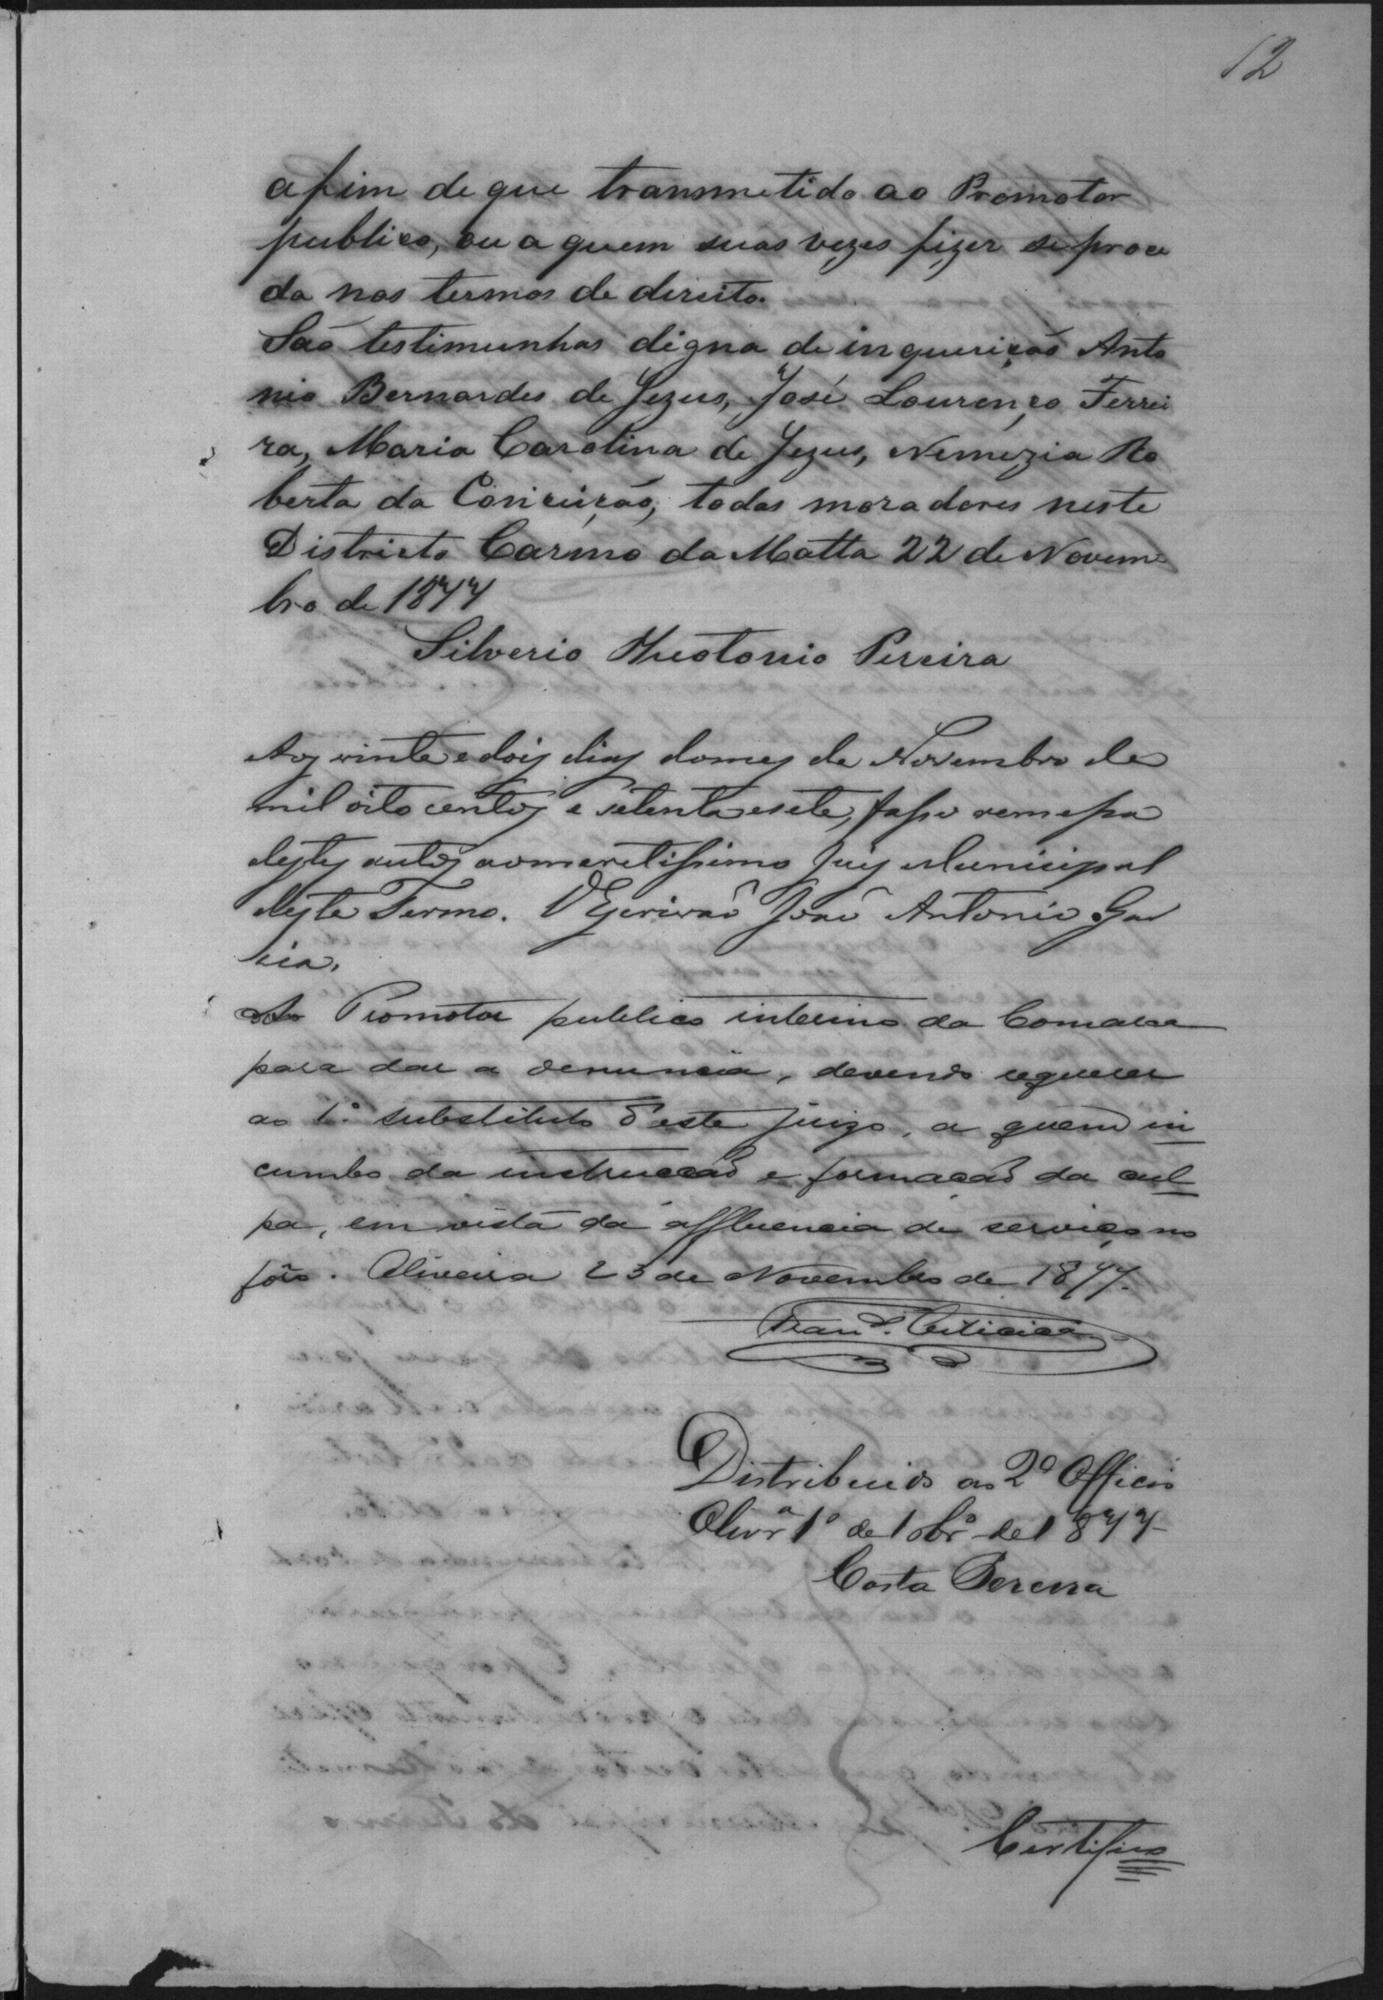 12
afim de que transmetido ao Promotor
publico, ou a quem suas vezes fizer se proce
da nos termos de direito.
São testimunhas digna de inquerição Anto
nio Bernardes de Jezus, José Lourenço Ferrei
ra, Maria Carolina de Jezus, Nemezia Ro
berta da Conceição, todas moradores neste
Districto Carmo da Matta 22 de Novem
bro de 1877
Silverio Theotonio Pereira
Aos vinte e dois dias do mes de Novembro de
mil oito centos e setenta e sete, fasso remessa
destes autos ao meretissimo Juis Municipal
deste Termo. O Escrivaõ Joaõ Antonio Gar
cia.
Ao Promotor publico interino da Comarca
para dar a denuncia, devendo requerer
ao 1.º substituto d'este juizo, a quem in
cumbo da instrucção e formação da cul
pa, em vista da affluencia de serviço no
fôro. Oliveira 23 de Novembro de 1877.
Distribuido ao 2º Officio
Olivrª 1º de 10brº de 1877
Costa Pereira
Certifico